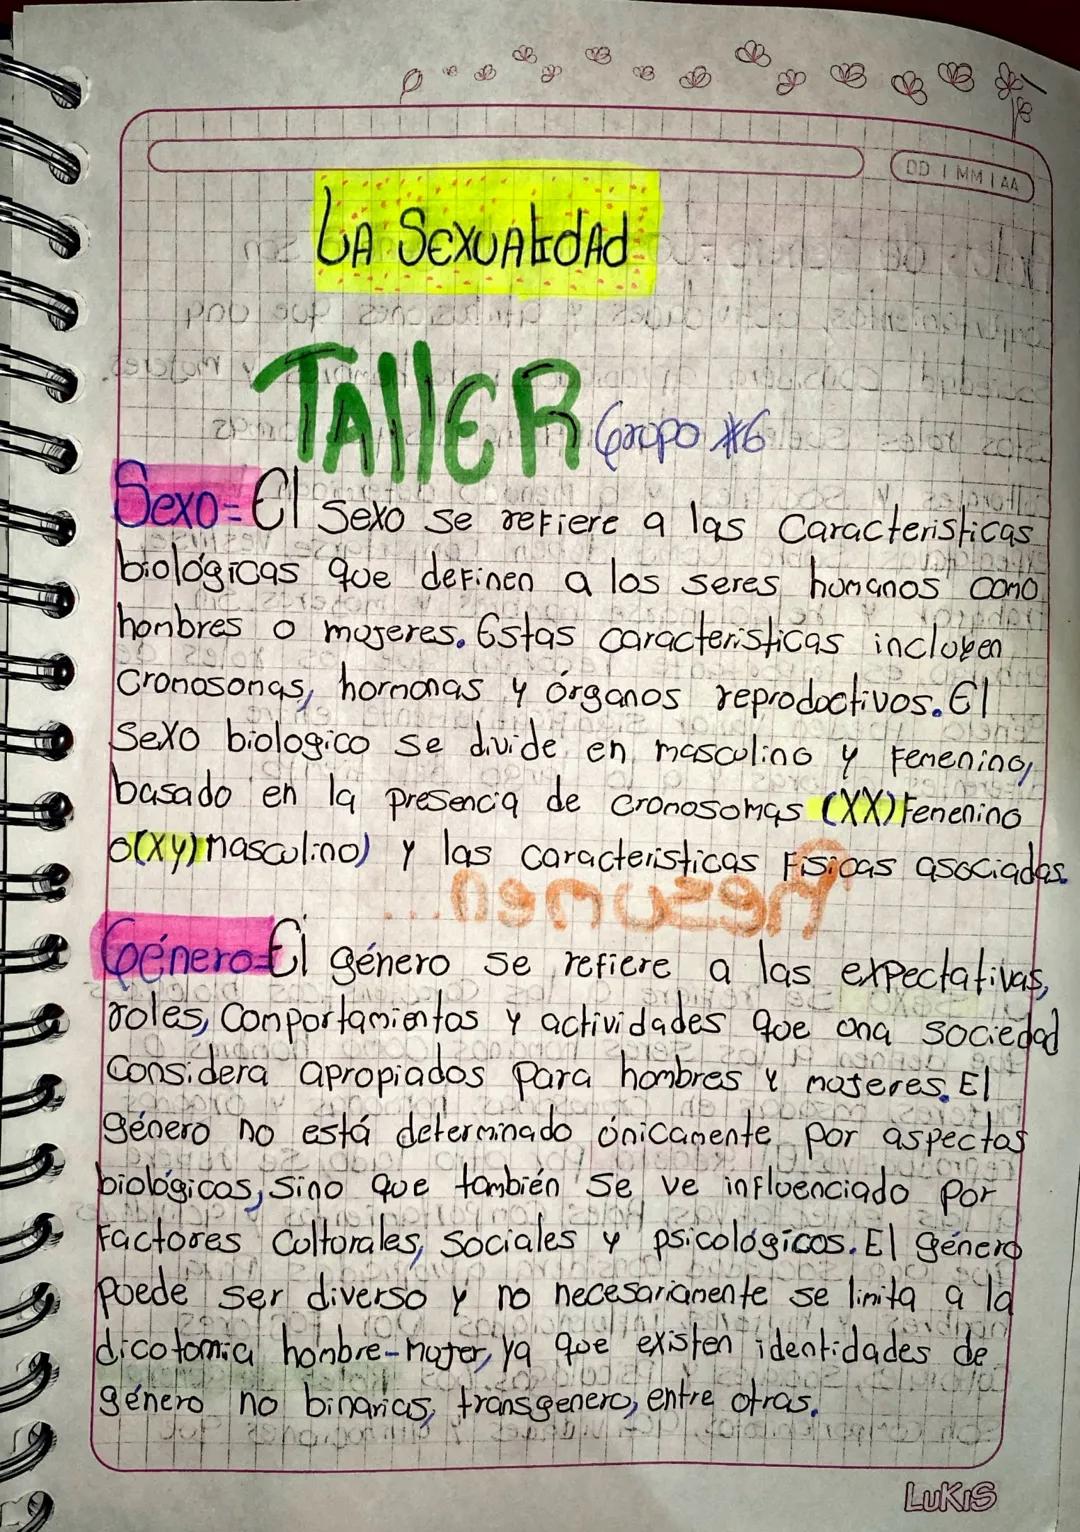 DD MM AA
LA SEXUALIDAD
TALLER Grupo #6
Sexo= El sexo se refiere a las caracteristicas
biológicas que definen a los seres humanos como
hombres o mujeres. Estas caracteristicas incluyen
cromosomas, hormonas y órganos reproductivos. El
sexo biologico se divide en masculino y femenino,
basado en la presencia de cromosomas (XX) femenino
o(xy) masculino) y las caracteristicas fisicas asociadas.
Género= El género se refiere a las expectativas,
roles, comportamientos y actividades que una sociedad
considera apropiados para hombres y mujeres. El
género no está determinado únicamente por aspectos
biológicos, sino que también se ve influenciado por
factores culturales, sociales y psicológicos. El género
puede ser diverso y no necesariamente se limita a la
dicotomia hombre-mujer, ya que existen identidades de
género no binarias, transgenero, entre otras.
LUKIS